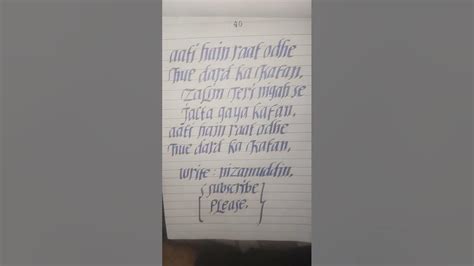 40
aati hain raat odhe
hue dard ka kafan,
zalim teri nigah se
Jalta gaya kafan,
aati hain raat odhe
hue dard ka kafan,
write : nizamuddin,
{ subscribe }
{ Please, }